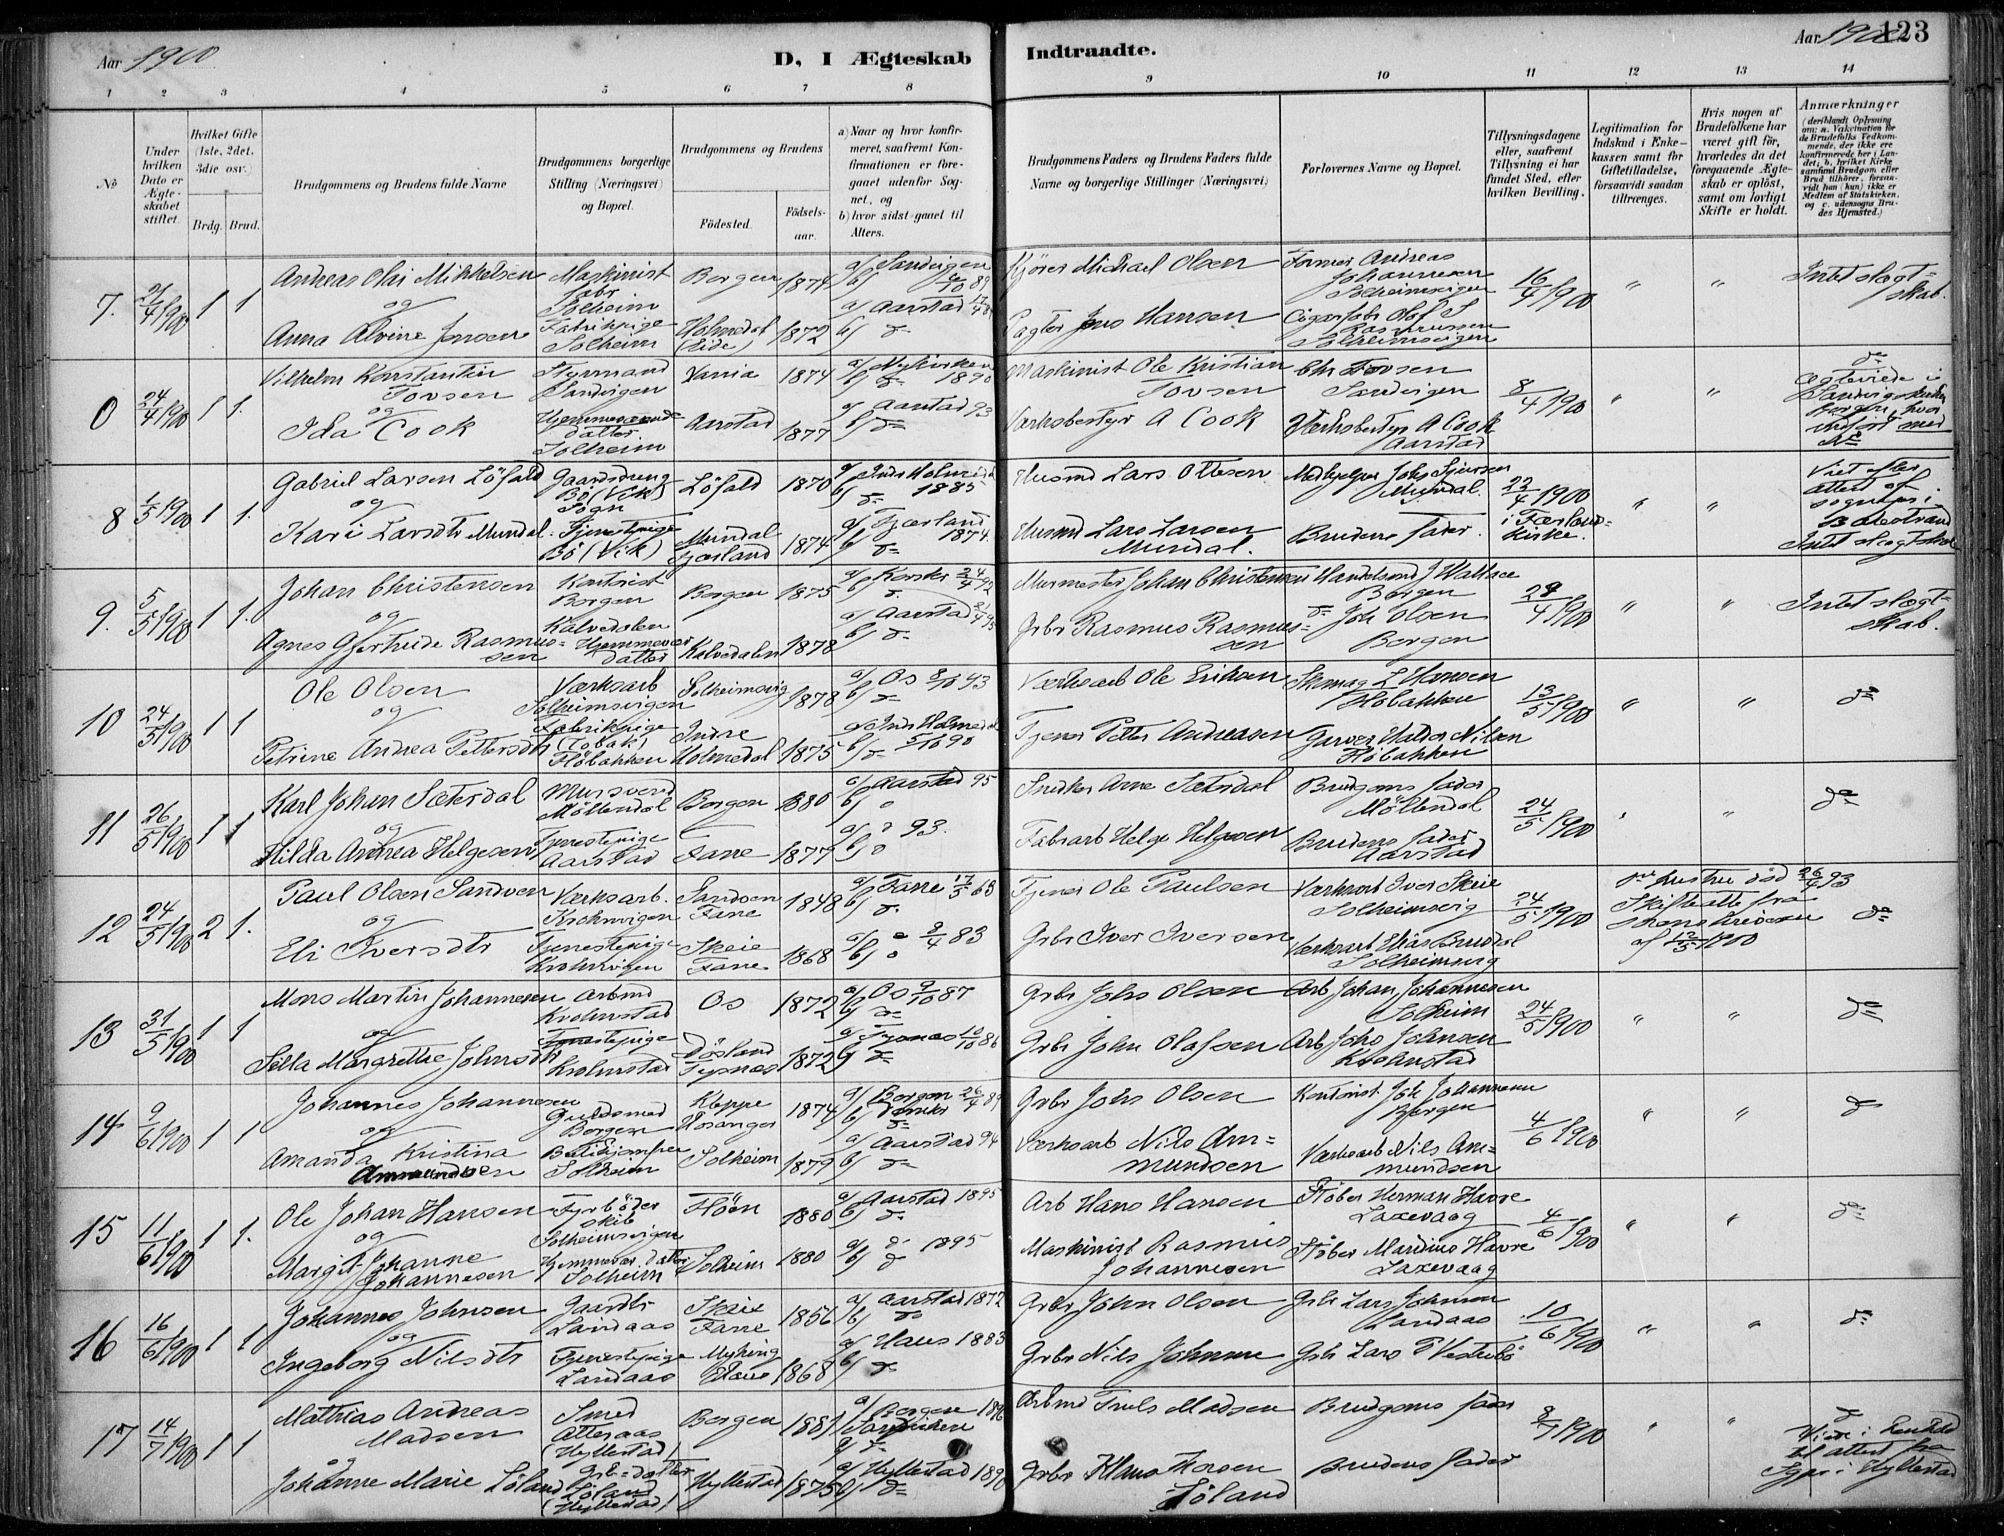 Aar 1900
D, I Ægteskab Indtraadte.
Aar 1900 123
1 2 3 4 5 6 7 8 9 10 11 12 13 14
No
Under hvilken Dato er Ægteskabet stiftet.
Hvilket Gifte (1ste, 2det, 3die osv.)
Brdg. Brud.
Brudgommens og Brudens fulde Navne
Brudgommens borgerlige Stilling (Næringsvei) og Bopæl.
Brudgommens og Brudens
Födested.
Födsels-aar.
a) Naar og hvor konfirmeret, saafremt Konfirmationen er foregaaet udenfor Sognet, og
b) hvor sidst gaaet til Alters.
Brudgommens Faders og Brudens Faders fulde Navne og borgerlige Stillinger (Næringsvei)
Forlovernes Navne og Bopæl.
Tillysningsdagene eller, saafremt Tillysning ei har fundet Sted, efter hvilken Bevilling.
Legitimation for Indskud i Enkekassen samt for Giftetilladelse, forsaavidt saadan tiltrænges.
Hvis nogen af Brudefolkene har været gift før, hvorledes da det foregaaende Ægteskab er oplöst, samt om lovligt Skifte er holdt.
Anmærkninger
(deriblandt Oplysning om: a. Vakcination for de Brudefolks Vedkommende, der ikke ere konfirmerede her i Landet, b. hvilket Kirkesamfund Brudgom eller Brud tilhörer, forsaavidt han (hun) ikke er Medlem af Statskirken, og c. udensogns Brudes Hjemsted.)
7. 21/4 1900 1 1 Andreas Olai Mikkelsen Maskinist fabr Solheim Bergen 1874 a) Sandvigen b) 6/10 89 Kjører Michael Olsen Former Andreas Johannesen Solheimsvigen 16/4 1900 " " Intet slægtskab.
og
Anna Alvine Jensen Fabrikpige Solheim Holmedal (Eide) 1872 a) Aarstad b) d= Pagter Jens Hansen Cigarfabr Olof S Rasmussen Solheimsvigen
0 24/4 1900 1 1. Vilhelm Konstantin Tovsen Styrmand Sandvigen Vania 1874 a) Nykirken b) d= 1890 Maskinist Ole Kristian Tovsen Chr Tovsen Sandvigen 8/4 1900 " " d= Ægteviede i Sandvigskirken Bergen, hvor indført med No
og
Ida Cook Hjemmeværende datter Solheim Aarstad 1877 a) Aarstad 93 b) d= Værksbestyr A Cook Værksbestyr A Cook Aarstad
8 1/5 1900 1 1. Gabriel Larsen Löfald Gaardsdreng Bö (Vik) Sogn Löfald 1870 a) Indr Holmedal b) d= 1885 Husmd Lars Ottesen Medhjelper Johs Sjursen Mundal. 22/4 1900 i Færlands Kirke. " " Viet efter attest af sogneprs i Balestrand Intet slægtskab
og
Kari Larsdtr Mundal. Tjenestepige Bö (Vik) Mundal Fjærland 1874 a) Fjærland b) d= 1874. Husmd Lars Larsen Mundal. Brudens fader.
9. 5/5 1900 1 1. Johan Christensen Kontorist Bergen Bergen 1875 a) Korskr 24/4 92 b) d= Murmester Johan Christensen Handelsmd J Wallace Bergen 29/4 1900 " " Intet slægtskab.
og
Agnes Gjertrude Rasmussen Kalvedalen Hjemmevær datter Kalvedalen 1878 a) Aarstad 21/4 95 b) d= Grbr Rasmus Rasmussen d= Joh Olsen Bergen
10 24/5 1900 1 1 Ole Olsen Værksarb Solheimsvigen Solheimsvig 1878 a) Os 8/10 93 b) d= Værksarb Ole Eriksen Skomag L Hansen Flöbakken 13/5 1900 " " d=
og
Petrine Andrea Pettersdtr Fabrikpige (Tobak) Flöbakken Indre Holmedal 1875 a) Indr Holmedal b) 5/10 90 d= Tjener Petter Andreasen Garver Nilsen Flöbakken
11 26/5 1900 1 1 Karl Johan Sæterdal Mursvend Möllendal Bergen 1880 a) Aarstad 95 b) " Snedker Arne Sæterdal Brudgoms fader Möllendal 24/5 1900 " " d=
og
Hilda Andrea Helgesen Tjenestepige Aarstad Fane 1877 a) d 93. b) " Fabrarb Helge Helgesen Brudens fader Aarstad
12 24/5 1900 2 1. Paul Olsen Sandven Værksarb. Krohnvigen Sandven Fane 1848 a) Fane 17/5 63 b) d= Tjener Ole Paulsen Værksarb Iver Skeie Solheimsvig 24/5 1900 hustru död 26/4 93 Skifteatte fra af 12/5 1900 d=
og
Eli Iversdtr Tjenestepige Krohnvigen Skeie Fane 1868 a) " 2/4 83 b) " Grbr Iver Iversen Værksarb Elias Bruedal Solheimsvig
13 31/5 1900 1 1 Mons Martin Johannesen Arbmd Krohnstad Os 1872 a) Os 9/10 87 b) d= Grbr Johs Olsen Arb Johan Johannesen Solheim 24/5 1900 " " d=
og
Sella Margrethe Johnsdtr Tjenestepige Krohnstad Tysnæs 1872 a) Tysnæs 10/10 86 b) d= Grbr John Olafsen Arb Johs Johnsen Krohnstad
14 9/6 1900 1 1 Johannes Johannesen Guldsmed Bergen Koppe 1874 a) Bergen 26/4 89 b) d= Grbr Johs Olsen Kontorist Joh Johannesen Bergen 4/6 1900 " " d
og
Amanda Kristina Ammundsen Butikjomfru Solheim Solheim 1879 a) Aarstad 94 b) d= Værksarb Nils Ammundsen Værksarb Nils Ammundsen
15 11/6 1900 1 1. Ole Johan Hansen Fyrböder skib Solheimsvigen Flöen 1880 a) Aarstad 1895 b) d= Arb Hans Hansen Stöber Herman Havre Laxevaag 4/6 1900 " " d=
og
Margit Johanne Johannesen Hjemmevær. datter Solheim Solheim 1880 a) d= 1895 b) d Maskinist Rasmus Johannesen Stöber Maridius Havre Laxevaag
16 16/6 1900 1 1 Johannes Johnsen Gaardbr Landaas Skeie Fane 1856 a) Aarstad 1872 b) d= Grbr John Olsen Grbr Lars Johnsen Landaas 10/6 1900 " " d=
og
Ingeborg Nilsdtr Tjenestepige Landaas Myking Haus 1868 a) Haus 1883 b) d= Grbr Nils Johnsen Grbr Lars P Vestrebö
17 14/7 1900 1 1 Mathias Andreas Madsen Smed Atteraas (Hyllestad) Bergen 1881 a) Bergen 1896 Sandviken b) d= Arbmd Truls Madsen Brudgoms fader 8/7 1900 " " d Viet i Lavik af attest fra Sgpr i Hyllestad
og
Johanne Marie Löland Grb= datter Löland (Hyllestad) Hyllestad 1875 a) Hyllestad 1890 b) d= Grbr Klaus Hansen Löland Brudens fader